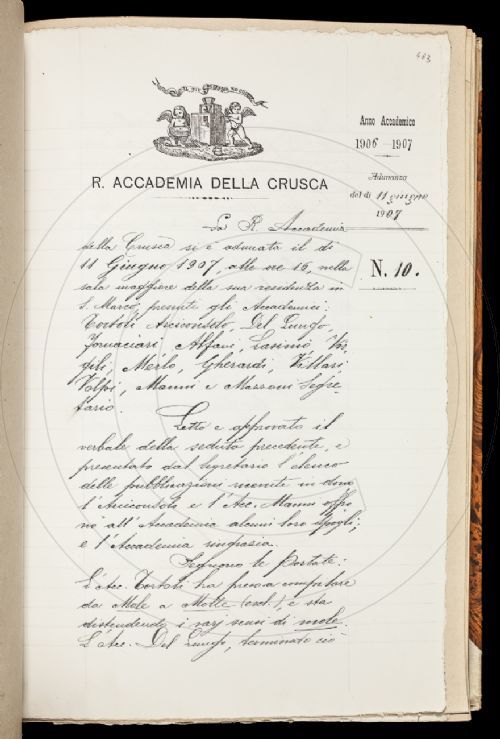 483
R. ACCADEMIA DELLA CRUSCA
Anno Accademico
1906-1907
Adunanza
del dì 11 giugno
1907
N. 10.
La R. Accademia
della Crusca si è adunata il dì
11 Giugno 1907, alle ore 15, nella
sala maggiore della sua residenza in
S. Marco, presenti gli Accademici:
Tortoli Arciconsolo, Del Lungo,
Fornaciari, Alfani, Lasinio, Vir-
gili, Merlo, Gherardi, Villari
Volpi, Manni e Mazzoni Segre-
tario.
Letto e approvato il
verbale della seduta precedente, e
presentato dal Segretario l'elenco
delle pubblicazioni ricevute in dono
l'Arciconsolo e l'Acc. Manni offro-
no all'Accademia alcuni loro spogli;
e l'Accademia ringrazia.
Seguono le Portate:
L'Acc. Tortoli ha preso a compilare
da Mole a Molle (escl.), e sta
distendendo i varj sensi di mole.
L'Acc. Del Lungo, terminato ciò